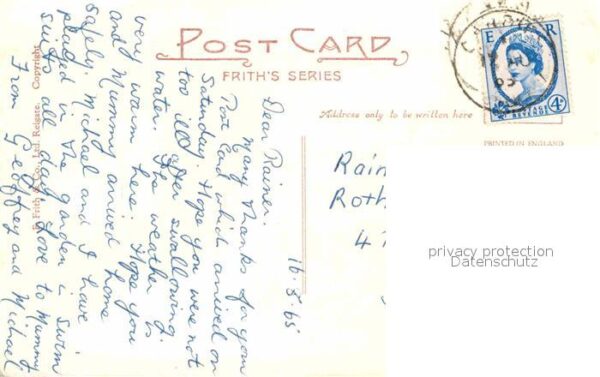 POST CARD
FRITH'S SERIES
Address only to be written here
PRINTED IN ENGLAND
F. Frith & Co., Ltd. Reigate. Copyright
E R
POSTAGE
REVENUE
4D
16.8.65
Dear Rainer.
Many thanks for your
Post Card which arrived on
Saturday. Hope you were not
too ill after swallowing
water. The weather is
very warm here. Hope you
and Mummy arrived home
safely. Michael and I have
played in the garden in swim
suits all day. Love to Mummy
From Geoffrey and Michael
Rain
Roth
4
privacy protection
Datenschutz